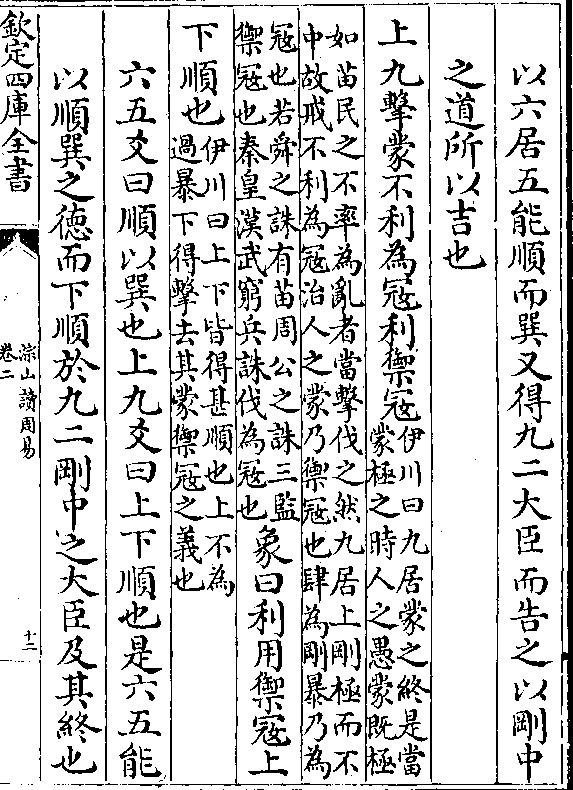 以六居五能順而巽又得九二大臣而告之以剛中
之道所以吉也
上九擊蒙不利為冦利禦冦
伊川曰九居蒙之終是當
蒙極之時人之愚蒙既極
如苗民之不率為亂者當擊伐之然九居上剛極而不
中故戒不利為冦治人之蒙乃禦冦也肆為剛暴乃為
冦也若舜之誅有苗周公之誅三監
禦冦也秦皇漢武窮兵誅伐為冦也
象曰利用禦冦上
下順也
伊川曰上下皆得甚順也上不為
過暴下得擊去其蒙禦冦之義也
六五爻曰順以巽也上九爻曰上下順也是六五能
以順巽之徳而下順於九二剛中之大臣及其終也
欽定四庫全書
淙山讀周易
卷二
十二